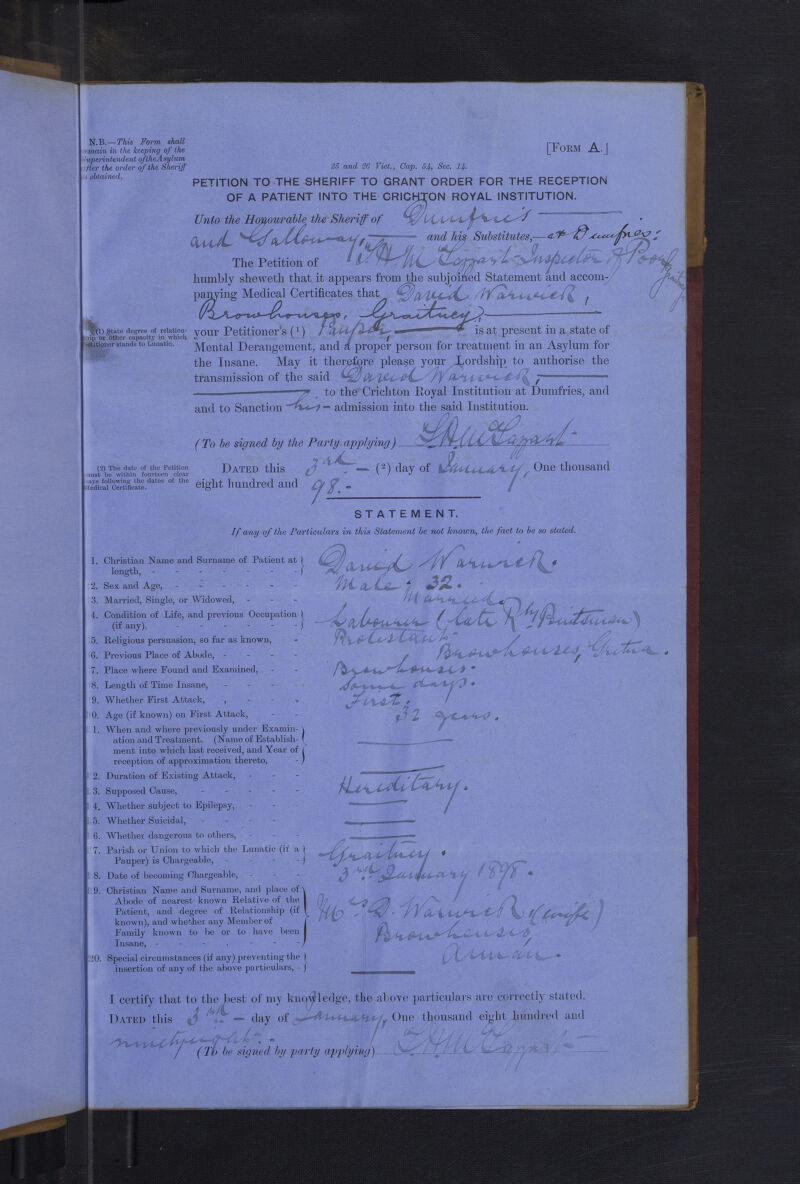 N.B.—This Form shall
remain in the keeping of the
Superintendent of the Asylum
after the order of the Sheriff
is obtained.
[FORM A.]
25 and 26 Vict., Cap. 54, Sec. 14.
PETITION TO THE SHERIFF TO GRANT ORDER FOR THE RECEPTION
OF A PATIENT INTO THE CRICHTON ROYAL INSTITUTION.
Unto the Honourable the Sheriff of Dumfries
and Galloway, and his Substitutes,—at Dumfries:
The Petition of Inspector of Poor Graitney
humbly sheweth that it appears from the subjoined Statement and accom-
panying Medical Certificates that David Warwick,
Browhouses, Graitney,
(1) State degree of relation-
ship or other capacity in which
Petitioner stands to Lunatic.
your Petitioner's (1) Pauper, is at present in a state of
Mental Derangement, and a proper person for treatment in an Asylum for
the Insane. May it therefore please your Lordship to authorise the
transmission of the said David Warwick,
to the Crichton Royal Institution at Dumfries, and
and to Sanction his— admission into the said Institution.
(To be signed by the Party applying)
(2) The date of the Petition
must be within fourteen clear
days following the dates of the
Medical Certificate.
DATED this 3rd — (2) day of January, One thousand
eight hundred and 98.-
STATEMENT.
If any of the Particulars in this Statement be not known, the fact to be so stated.
1. Christian Name and Surname of Patient at length, - David Warwick.
2. Sex and Age, - Male. 32.
3. Married, Single, or Widowed, - Married.
4. Condition of Life, and previous Occupation (if any), - Labourer (late Rly
5. Religious persuasion, so far as known, - Protestant
6. Previous Place of Abode, - Browhouses, Gretna.
7. Place where Found and Examined, - Browhouses.
8. Length of Time Insane, - some days.
9. Whether First Attack, - First.
10. Age (if known) on First Attack, - 32 years.
11. When and where previously under Examin-
ation and Treatment. (Name of Establish-
ment into which last received, and Year of
reception of approximation thereto, -)
12. Duration of Existing Attack, -
13. Supposed Cause, - Hereditary.
14. Whether subject to Epilepsy, -
15. Whether Suicidal, -
16. Whether dangerous to others, -
17. Parish or Union to which the Lunatic (if a
Pauper) is Chargeable, - Graitney.
18. Date of becoming Chargeable, - 3rd January 1898.
19. Christian Name and Surname, and place of
Abode of nearest known Relative of the
Patient, and degree of Relationship (if
known), and whether any Member of
Family known to be or to have been
Insane, -
Mrs D. Warwick (wife)
Browhouses,
Annan.
20. Special circumstances (if any) preventing the
insertion of any of the above particulars, -
I certify that to the best of my knowledge, the above particulars are correctly stated.
DATED this 3rd — day of January, One thousand eight hundred and
ninetyeight.-
(To be signed by party applying)